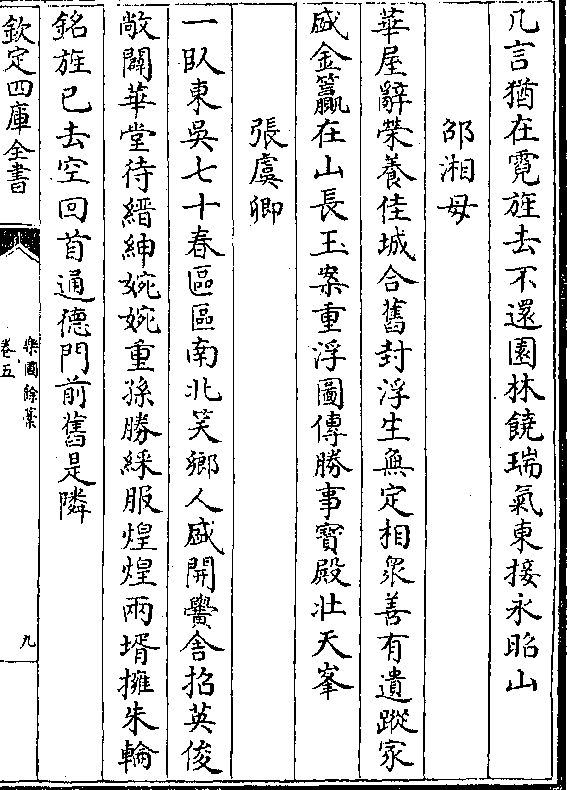 几言猶在霓旌去不還園林饒瑞氣東接永昭山
邵湘母
華屋辭榮養佳城合舊封浮生無定相衆善有遺蹤家
盛金籯在山長玉案重浮圖傳勝事寶殿壯天峯
張虞卿
一臥東吳七十春區區南北笑鄉人盛開黌舍招英俊
敞闢華堂待縉紳婉婉重孫勝綵服煌煌兩壻擁朱輪
銘旌已去空回首通德門前舊是隣
欽定四庫全書
樂圃餘藁
卷五
九